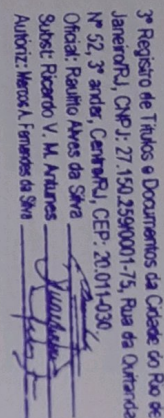 3º Registro de Títulos e Documentos da Cidade do Rio de
Janeiro/RJ, CNPJ: 27.150.259/0001-75, Rua da Quitanda
Nº 52, 3º andar, Centro/RJ, CEP: 20.011-030,
Oficial: Raulito Alves da Silva
Subst: Ricardo V. M. Antunes
Autoriz: Marcos A. Fernandes da Silva